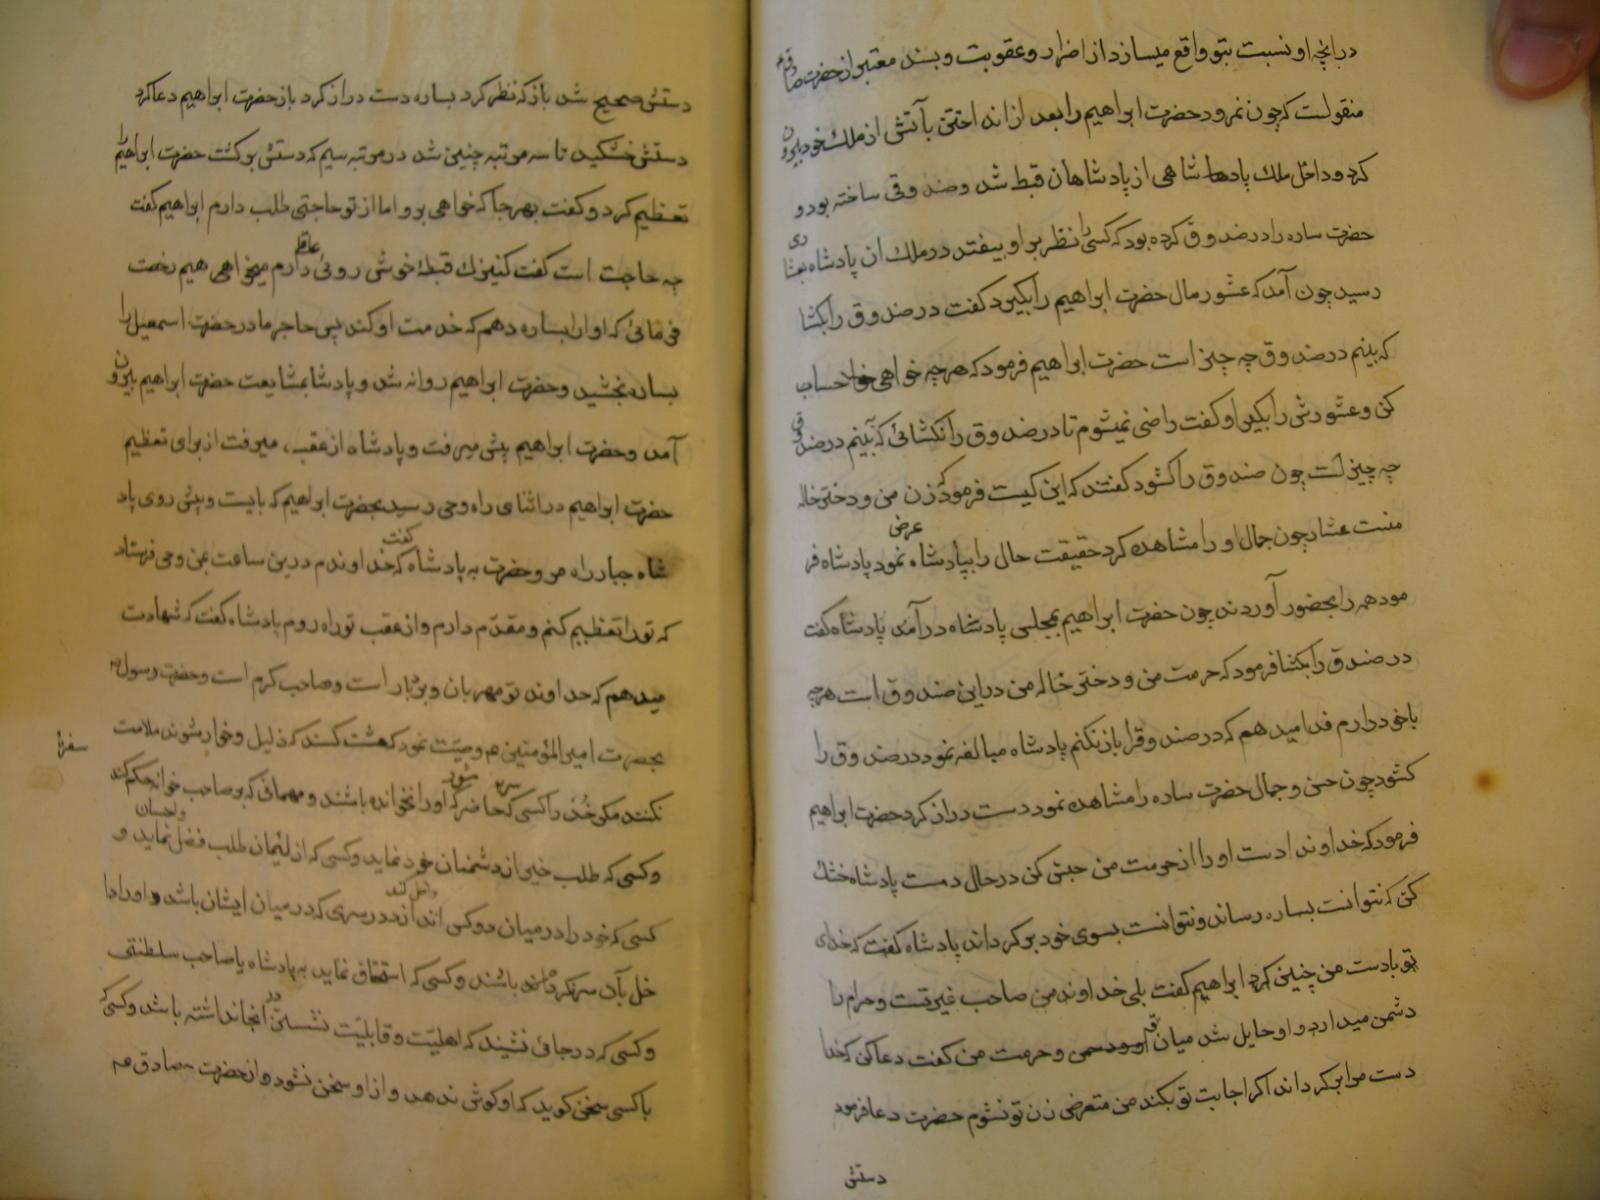 در آنچه او نسبت بتو واقع میسازد از اضرار و عقوبت و بسند معتبر از حضرت صادق ع
منقولست که چون نمرود حضرت ابراهیم را بعد از انداختن بآتش از ملک خود بیرون
کرد و داخل ملک پادشاهی از پادشاهان قبط شد و صندوقی ساخته بود و
حضرت ساره را در صندوق کرده بود که کسی را نظر بر او نیفتد در ملک ان پادشاه بعشاری
رسید چون آمد که عشور مال حضرت ابراهیم را بگیرد گفت در صندوق را بگشا
که بینم در صندوق چه چیز است حضرت ابراهیم فرمود که هر چه خواهی حساب
کن و عشورش را بگیر او گفت راضی نمیشوم تا در صندوق را نگشائی که ببینم در صندوق
چه چیز است چون صندوق را گشود گفتند که این کیست فرمود که زن من و دختر خاله
منست عشار چون جمال او را مشاهده کرد حقیقت حال را بپادشاه عرض نمود پادشاه فر
مود همه را بحضور آوردند چون حضرت ابراهیم بمجلس پادشاه درآمد پادشاه گفت
در صندق را بگشا فرمود که حرمت من و دختر خاله من در این صندوق است هر چه
با خود دارم فدا میدهم که در صندوق را باز نکنم پادشاه مبالغه نمود در صندوق را
گشود چون حسن و جمال حضرت ساره را مشاهده نمود دست دراز کرد حضرت ابراهیم
فرمود که خداوندا دست او را از حرمت من حبس کن در حال دست پادشاه خشک
کن که نتوانست بساره رساند و نتوانست بسوی خود برگرداند پادشاه گفت که خدای
تو با دست من چنین کرد ابراهیم گفت بلی خداوند من صاحب غیرتست و حرام را
دشمن میدارد و او حایل شد میان تو و حرمت من گفت دعا کن که خدا
دست مرا برگرداند اگر اجابت تو بکند من متعرض زن تو نشوم حضرت دعا فرمود
دستش
دستش صحیح شد باز که نظر کرد بساره دست دراز کرد باز حضرت ابراهیم دعا کرد
دستش خشکید تا سه مرتبه چنین شد در مرتبه سیم که دستش برگشت حضرت ابراهیم را
تعظیم کرد و گفت بهر جا که خواهی برو اما از تو حاجتی طلب دارم ابراهیم گفت
چه حاجت است گفت کنیزک قبطۀ خوش روئی عاقله دارم میخواهم رخصت
فرمائی که او را بساره دهم که خدمت او کند پس حاجر مادر حضرت اسمعیل را
بساره بخشید و حضرت ابراهیم روانه شد و پادشا بمشایعت حضرت ابراهیم بیرون
آمد و حضرت ابراهیم پیش میرفت و پادشاه از عقب، میرفت از برای تعظیم
حضرت ابراهیم در اثنای راه وحی رسید بحضرت ابراهیم که بایست و پیش روی پاد
شاه جبار راه مرو حضرت به پادشاه گفت که خداوندم درین ساعت بمن وحی فرستاد
که تو را تعظیم کنم و مقدّم دارم و از عقب تو راه روم پادشاه گفت که شهادت
میدهم که خداوند تو مهربان و بردبار است و صاحب کرم است و حضرت رسول ص
بحضرت امیر المؤمنین ع وصیّت نمود که هشت کسند که ذلیل و خوار شوند ملامت
نکنند مکر خُد را کسی که حاضر سفره شود که او را نخوانده باشند و مهمانی که بر صاحب خوانه حکم کند
سفرۀ
و کسی که طلب خیر از دشمنان خود نماید و کسی که از لئیمان طلب فضل و احسان نماید و
کسی که خود را در میان دو کس داخل کند اندازد در سری که در میان ایشان باشد و او را دا
خل بآن سر نکرده باشند و کسی که استخفاف نماید به پادشاه یا صاحب سلطنتی
و کسی که در جائی نشیند که اهلیّت و قابلیّت نشستن در انجا نداشته باشد و کسی که
با کسی سخن کوید که او کوش ندهد و از او سخن نشود و از حضرت صادق ع